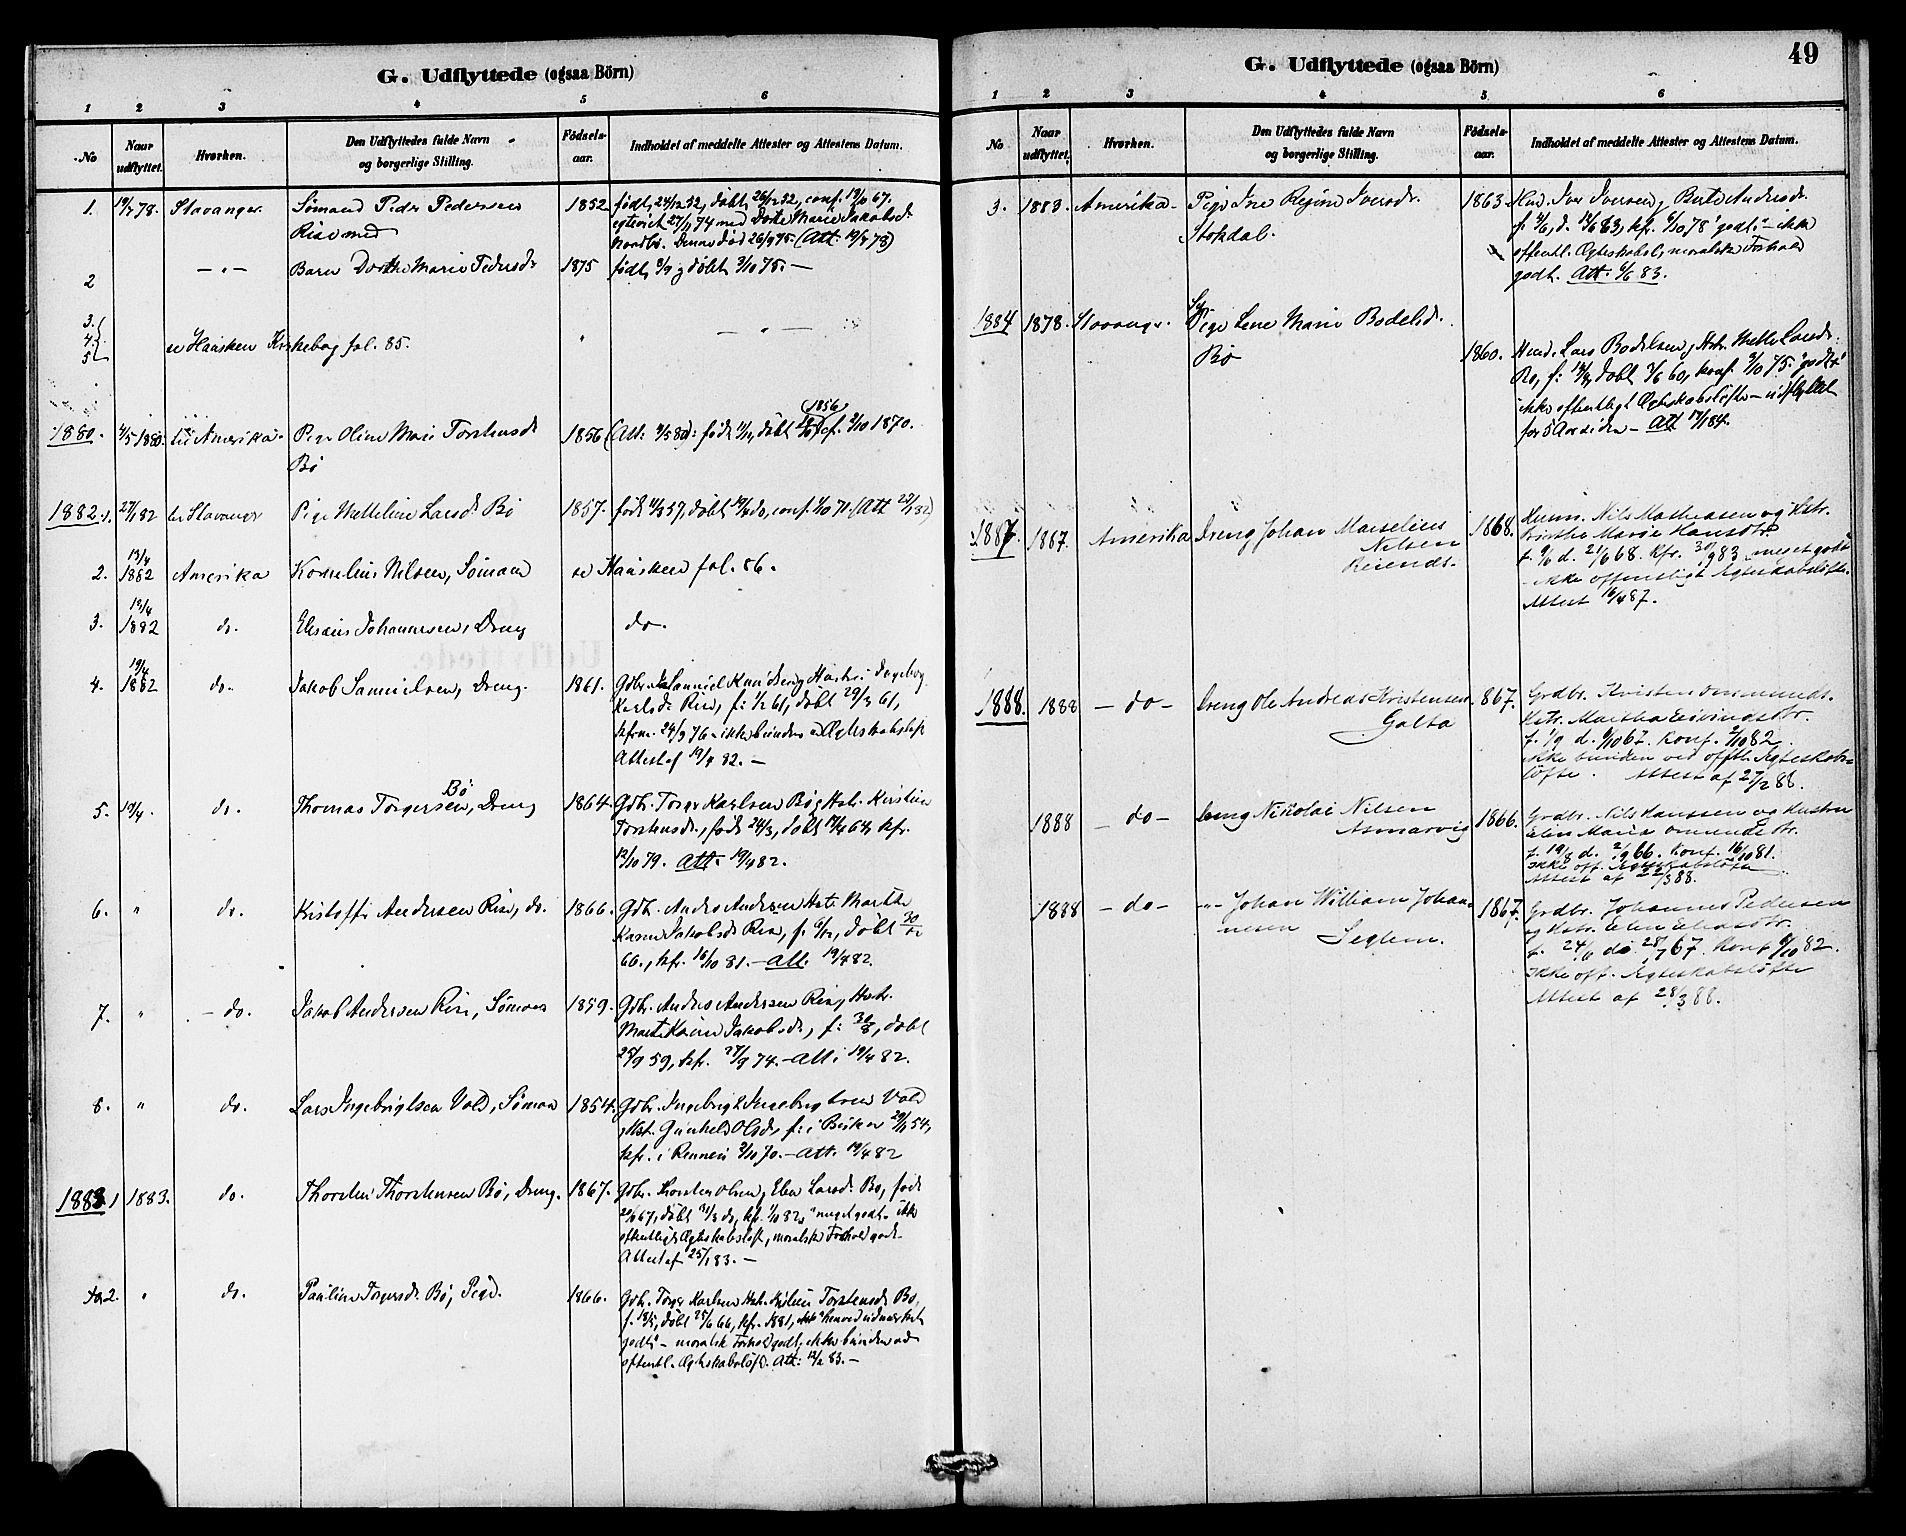 G. Udflyttede (ogsaa Börn)
1 2 3 4 5 6
No Naar udflyttet. Hvorhen. Den Udflyttedes fulde Navn og borgerlige Stilling. Födsels-aar. Indholdet af meddelte Attester og Attestens Datum.
1. 19/7 78. Stavanger Sømand Peder Pedersen 1852 født 24/12 52, døbt 26/12 52, conf. 19/10 67.
Rise med egteviet 27/11 74 med Dorte Marie Jakobsdr
Denne død 26/9 75. (Att. 19/7 78)
2 — " — Barn Dorthe Marie Pedersdr 1875 født 3/9 og døbt 3/10 75. —
3.
4. se Hausken Kirkebog fol. 85. — " —
5
1880. 4/5 1880. til Amerika. Pige Oline Marie Torstensdr 1856 (Att: 4/5 80): født døbt 1856 cf. 2/10 1870.
Bø
1882. 1. 27/1 82 til Stavanger Pige Metteline Larsdr Bø 1857. født 4/3 57, døbt do, conf. 1/10 71. (Att
2. 13/4 1882 Amerika Kornelius Nilsen, Sømand se Hausken fol. 86.
3. 13/4 1882 do. Elisæus Johannesen, Dreng do.
4. 19/4 1882 do. Jakob Samuelsen, Dreng. 1861. Gdbr. Samuel Knudsen og Hustru Ingeborg
Karlsdr Rise, f: 1/2 61, døbt 29/3 61,
kfrm. 24/9 76 – ikke bunden ved Ægteskabsløfte
Attest af 19/4 82. —
5. 19/4. do. Thomas Torgersen Bø, Dreng 1864. Gdbr. Torger Karlsen Bø og Hstr. Kirstine
Torstensdr., født 24/3, døbt 17/4 64, kfr.
12/10 79. Att: 19/4 82.
6. " do. Kristoffer Andersen Rise, do. 1866. Gdbr. Anders Andersen Hstr. Marthe
Karine Jakobsdr Rise, f: 6/12, døbt
66., kfr. 16/10 81. – Att. 19/4 82.
7. " – do. Jakob Andersen Rise, Sømand 1859. Gdbr. Anders Andersen Rise, Hstr.
Marte Karine Jakobsdr, f: 30/8, døbt
25/9 59, kfr. 27/9 74. – Att: 19/4 82.
8. " do. Lars Ingebrigtsen Vold, Sømand 1854. Gdbr. Ingebrigt Ingebrigtsen Vold
, Hst. Gunhild Olsdr, f: i 29/1 54,
kfr. i Rennesø 2/10 70. – Att. 19/4 82
1883. 1 1883. do. Thorsten Thorstensen Bø, Dreng. 1867. Gdbr. Thorsten Olsen, Elen Larsdr. Bø, født
67, døbt 31/3 do, kfr. 1/10 82, "meget godt". ikke
offentligt Ægteskabsløft, moralske Forhold godt.
Attest af 25/1 83. —
2. " do. Pauline Torgersdr. Bø, Pige. 1866. Gdbr. Torger Karlsen Hstr. Kirstine Torstensdr Bø,
f. 18/5, døbt 25/6 66, kfr. 1881,
godt" – moralsk Forhold godt, ikke bunden ved
offentl. Ægteskabsløft. Att: 12/2 83. —
49
G. Udflyttede (ogsaa Börn)
1 2 3 4 5 6
No Naar udflyttet. Hvorhen. Den Udflyttedes fulde Navn og borgerlige Stilling. Födsels-aar. Indholdet af meddelte Attester og Attestens Datum.
3. 1883. Amerika – Pige Ine Regine Iversdr. 1863 Hmd. Iver Iversen, Berte Andersdr.
Stokdal. f. 3/6, d. 14/6 63, kfr. 6/10 78 "godt." – ikke
offentl. Ægteskabsl., moralske Forhold
godt. Att: 6/6 83.
1884 1878. Stavanger. Pige Lene Marie Bodelsd.
Bø 1860. Hmd. Lars Bodelsen, Hstr. Mette Larsdr.
Bø, f: døbt 3/6 60, konf. 3/10 75. "godt".
ikke offentligt Ægteskabsløfte – udflyttet
for 5 Aar siden – Att 17/1 84.
1887. 1887. Amerika Dreng Johan Marselius 1868. Huum. Nils Mathiasen og Hstr.
Nilsen Marie Hansdtr.
f. 9/6 d. 21/6 68. Kfr. 30/9 83 meget godt
– ikke offentligt Ægteskabsløfte.
Attest 16/4 87.
1888. 1888 – do – Dreng Ole Andreas Kristensen 1867. Grdbr. Kristen Ommunds.
Galta Hstr. Martha Eivindsdtr.
f. 1/9 d. 6/10 67. Konf. 2/10 82.
ikke bunden ved offtl. Ægteskabs-
løfte. Attest af 27/2 88.
1888 – do – Dreng Nikolai Nilsen 1866. Grdbr. Nils Hanssen og Hustru
Asmarvig Elin Maria Omundsdtr.
f. 19/8 d. 2/9 66. Konf. 16/10 81.
ikke off. Ægteskabsløfte
Attest af 22/3 88.
1888 – do – – " – Johan William Johan- 1867. Grdbr. Johannes Pedersen
nesen og Hstr. Elen Eliasdtr.
Seglem. f. 24/6 d. 28/7 67. Konf. 8/10 82.
ikke off. Ægteskabsløfte
Attest af 28/3 88.